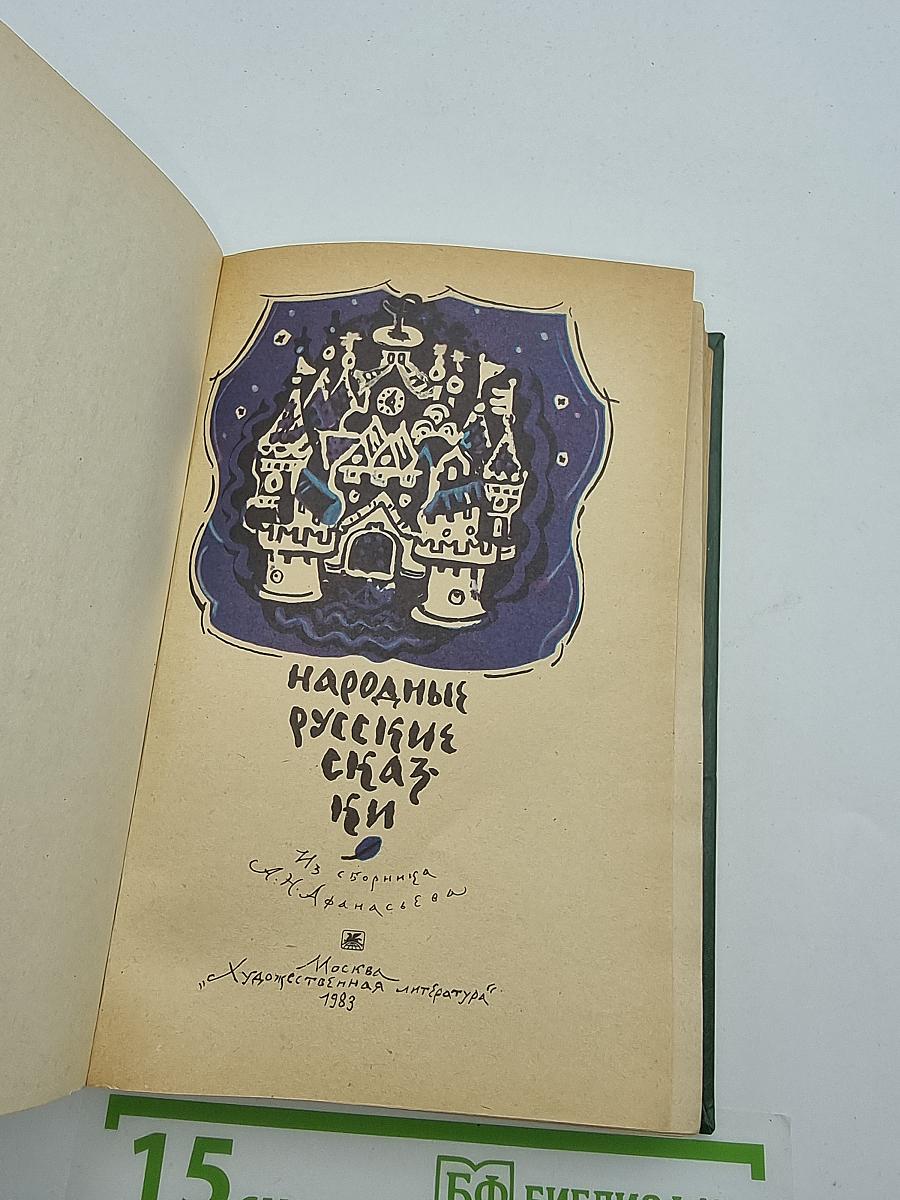 НАРОДНЫЕ
РУССКИЕ
СКАЗ-
КИ
Из сборника
А.Н.Афанасьева
Москва
„Художественная литература“
1983
15
БФ